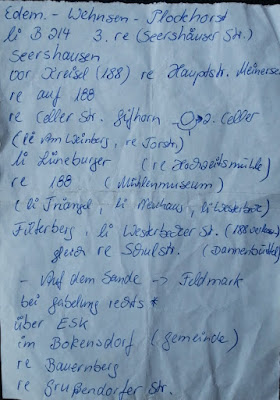 Edem. - Wehnsen - Plockhorst
li B 214 3. re (Seershäuser Str.)
Seershausen
vor Kreisel (188) re Hauptstr. Meinersen
re auf 188
re Celler Str. Gifhorn 2. Celler
(li Am Weinberg, re Torstr.)
li Lüneburger (re Hochzeitsmühle)
re 188 (Mühlenmuseum)
(li Triangel, li Neuhaus, li Westerbeck)
, li Westerbecker Str. (188
gleich re Schulstr. (Dannenbüttel)
- Auf dem Sande -> Feldmark
bei Gabelung rechts *
über ESK
im Bokensdorf (gemeinde)
re Bauernberg
re Grußendorfer Str.